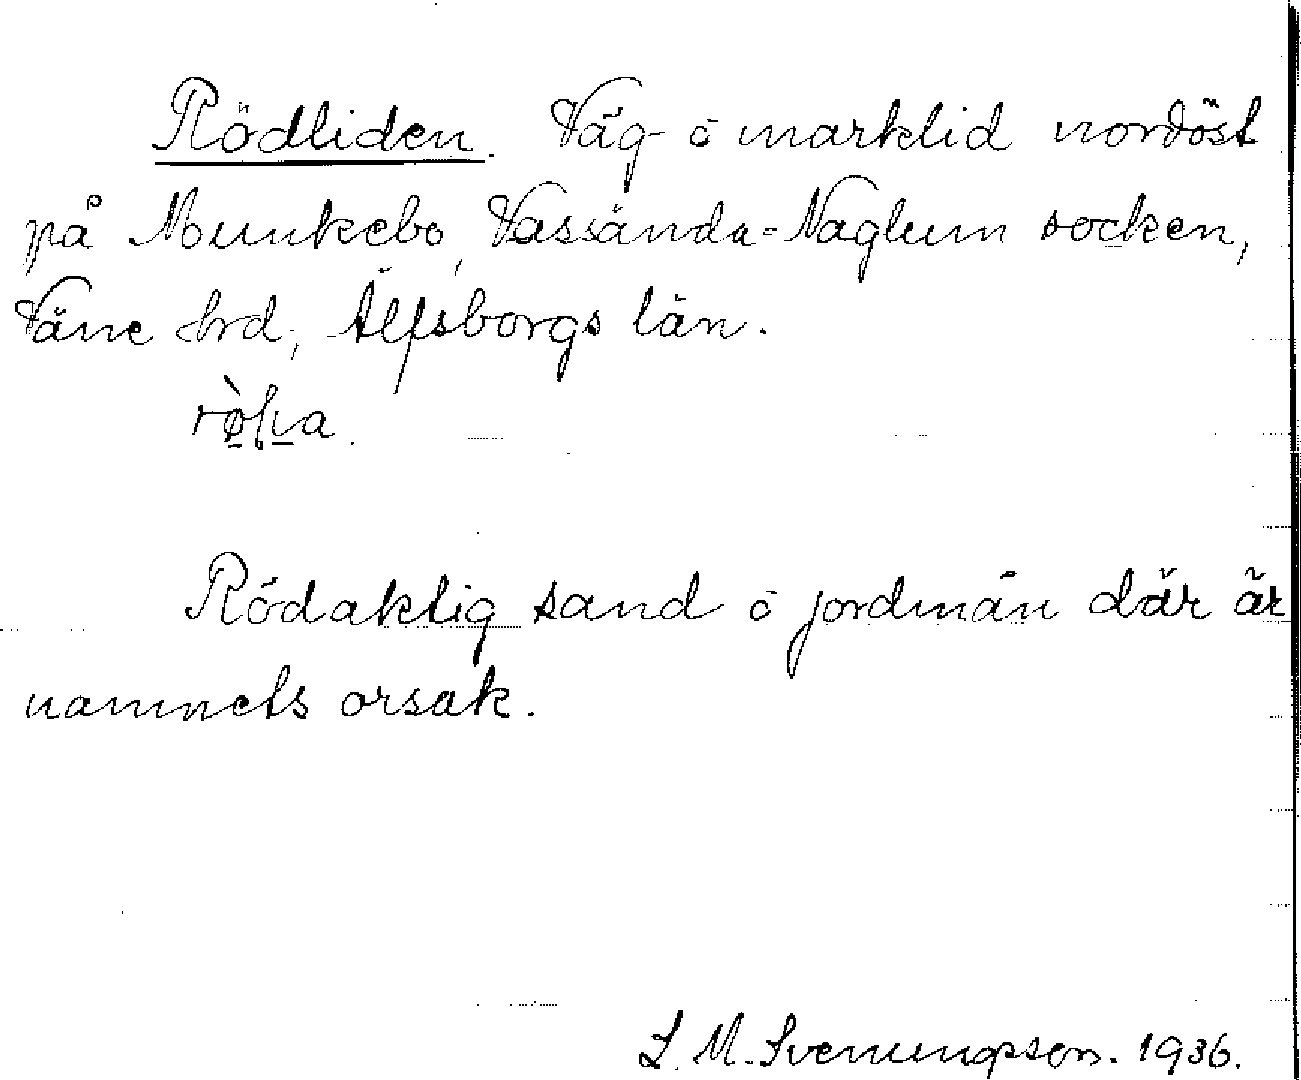 Rödliden. Väg- ö marklid nordöst
på Munkebo, Vassända-Naglum socken,
Väne hrd, Älfsborgs län.
Rödaktig sand ö jordmån där är
namnets orsak.
L. M. Svenungsson. 1936.